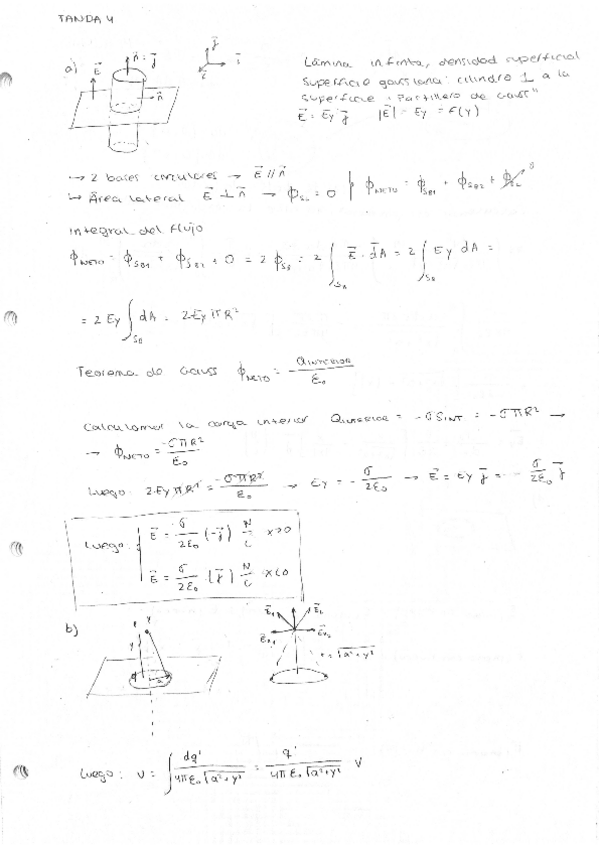 TANDA 4
a)
Lámina infinita, densidad superficial
Superficie gaussiana: cilindro ⊥ a la
superficie "Pastillero de Gauss"
E⃗ = Ey j⃗   |E⃗| = Ey = F(y)
→ 2 bases circulares → E⃗ // n⃗
↳ Área lateral E⃗ ⊥ n⃗ → ϕSL = 0 } ϕNETO = ϕSB1 + ϕSB2 + ϕSL 0
Integral del flujo
ϕNETO = ϕSB1 + ϕSB2 + 0 = 2 ϕSB = 2 ∫SB E⃗ · d⃗A = 2 ∫SB Ey dA =
= 2 Ey ∫SB dA = 2 Ey π R²
Teorema de Gauss ϕNETO = QINTERIOR / ε₀
Calculamos la carga interior QINTERIOR = -σ SINT = -σ π R² →
→ ϕNETO = -σ π R² / ε₀
Luego: 2 Ey π R² = -σ π R² / ε₀ → Ey = - σ / 2ε₀ → E⃗ = Ey j⃗ = - σ / 2ε₀ j⃗
Luego: { E⃗ = σ / 2ε₀ (-j⃗) N/C x>0
E⃗ = σ / 2ε₀ (j⃗) N/C x<0
b)
r = √a² + y²
Luego: V = ∫ dq' / 4π ε₀ √a² + y² = q' / 4π ε₀ √a² + y² V